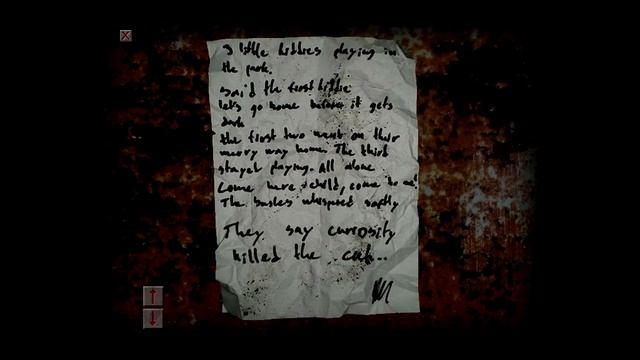 3 little kiddies playing in
the park.
Said the first kiddie
let's go home before it gets
dark
the first two went on their
merry way home. The third
stayed playing. All alone
Come here child, come to me!
The bushes whispered softly
They say curiosity
killed the cat..